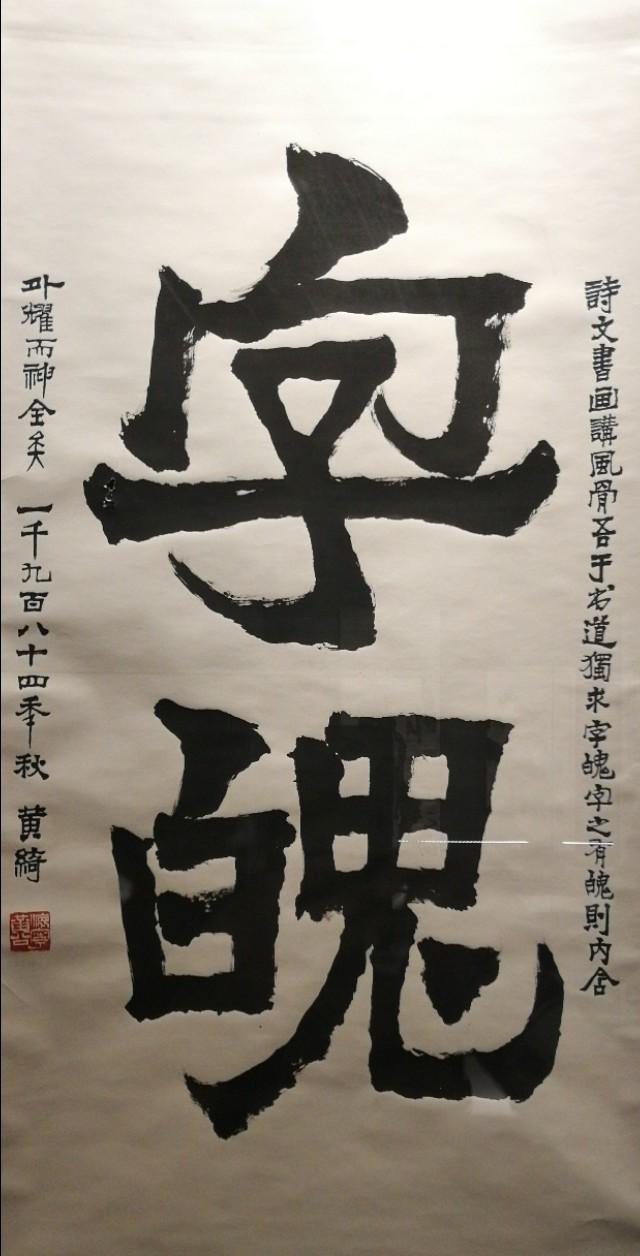 字魄
詩文書画講風骨吾于书道獨求字魄字之有魄則内含
外耀而神全矣 一千九百八十四秊秋 黄綺